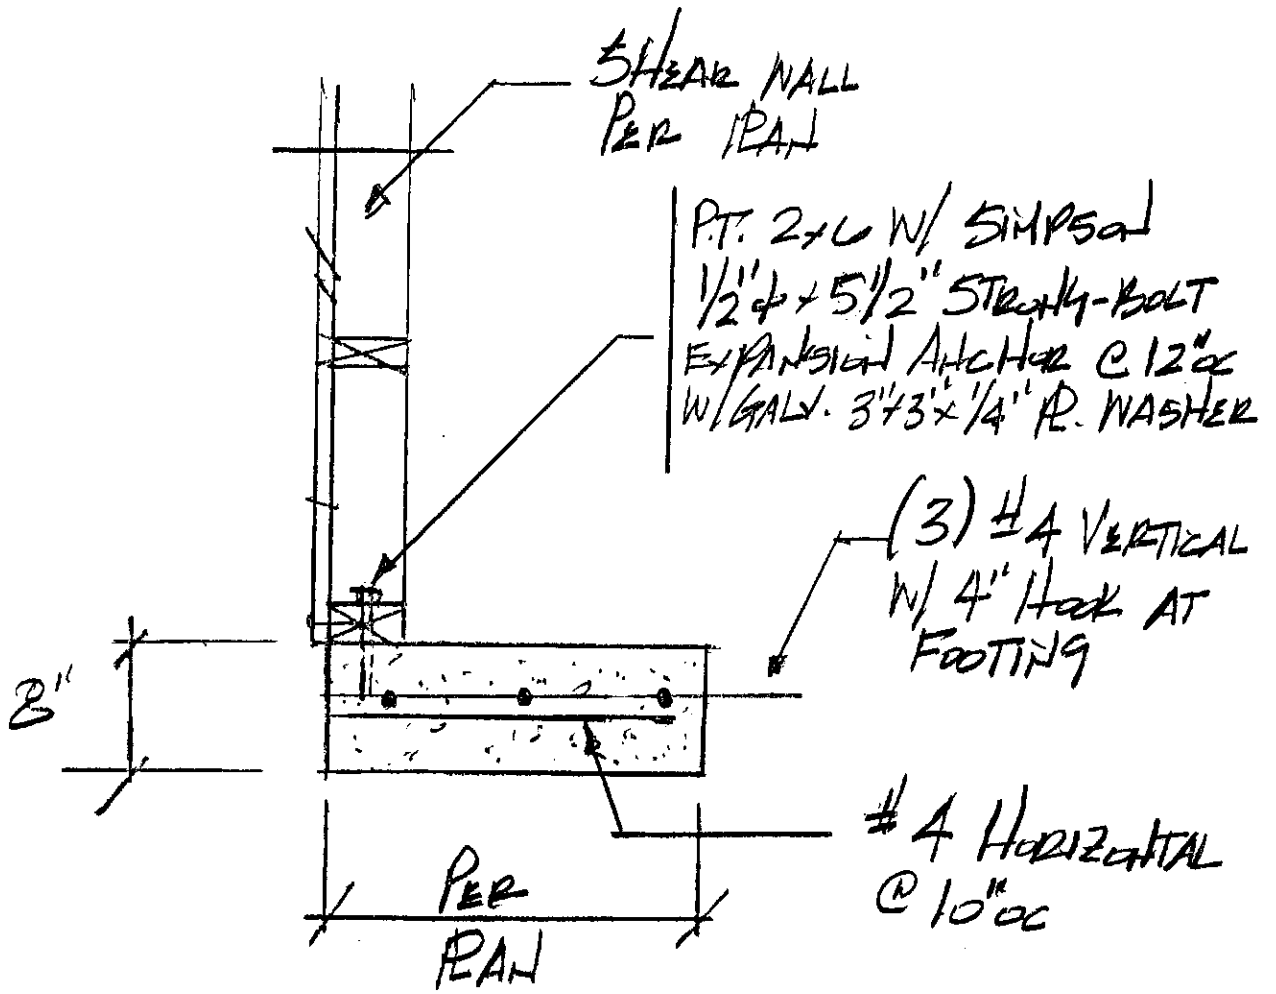 SHEAR WALL
PER PLAN
P.T. 2x6 W/ SIMPSON
1/2"φ x 5 1/2" STRONG-BOLT
EXPANSION ANCHOR @ 12"oc
W/ GALV. 3"x3"x1/4" PL. WASHER
(3) #4 VERTICAL
W/ 4" HOOK AT
FOOTING
8"
#4 HORIZONTAL
@ 10"oc
PER
PLAN